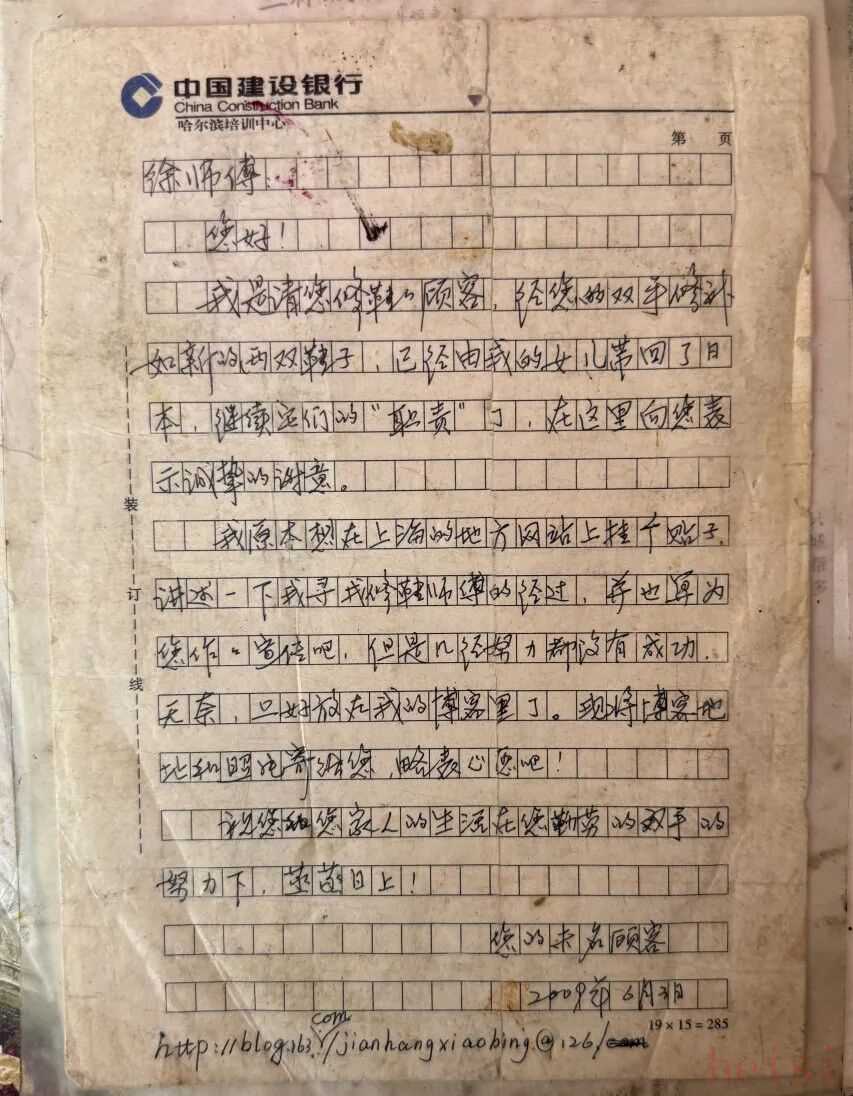 中国建设银行
China Construction Bank
哈尔滨培训中心
第 页
徐师傅：
您好！
我是请您修鞋的顾客，经您的双手修补
如新的两双鞋子，已经由我的女儿带回了日
本，继续它们的“职责”了，在这里向您表
示诚挚的谢意。
我原本想在上海的地方网站上挂个贴子，
讲述一下我寻找修鞋师傅的经过，并也算为
您作个宣传吧，但是几经努力都没有成功，
无奈，只好放在我的博客里了。现将博客地
址和照片寄给您，略表心愿吧！
祝您和您家人的生活在您勤劳的双手的
努力下，蒸蒸日上！
您的未名顾客
2009年6月3日
19×15=285
http://blog.163.com/jianhangxiaobing@126/
装
订
线